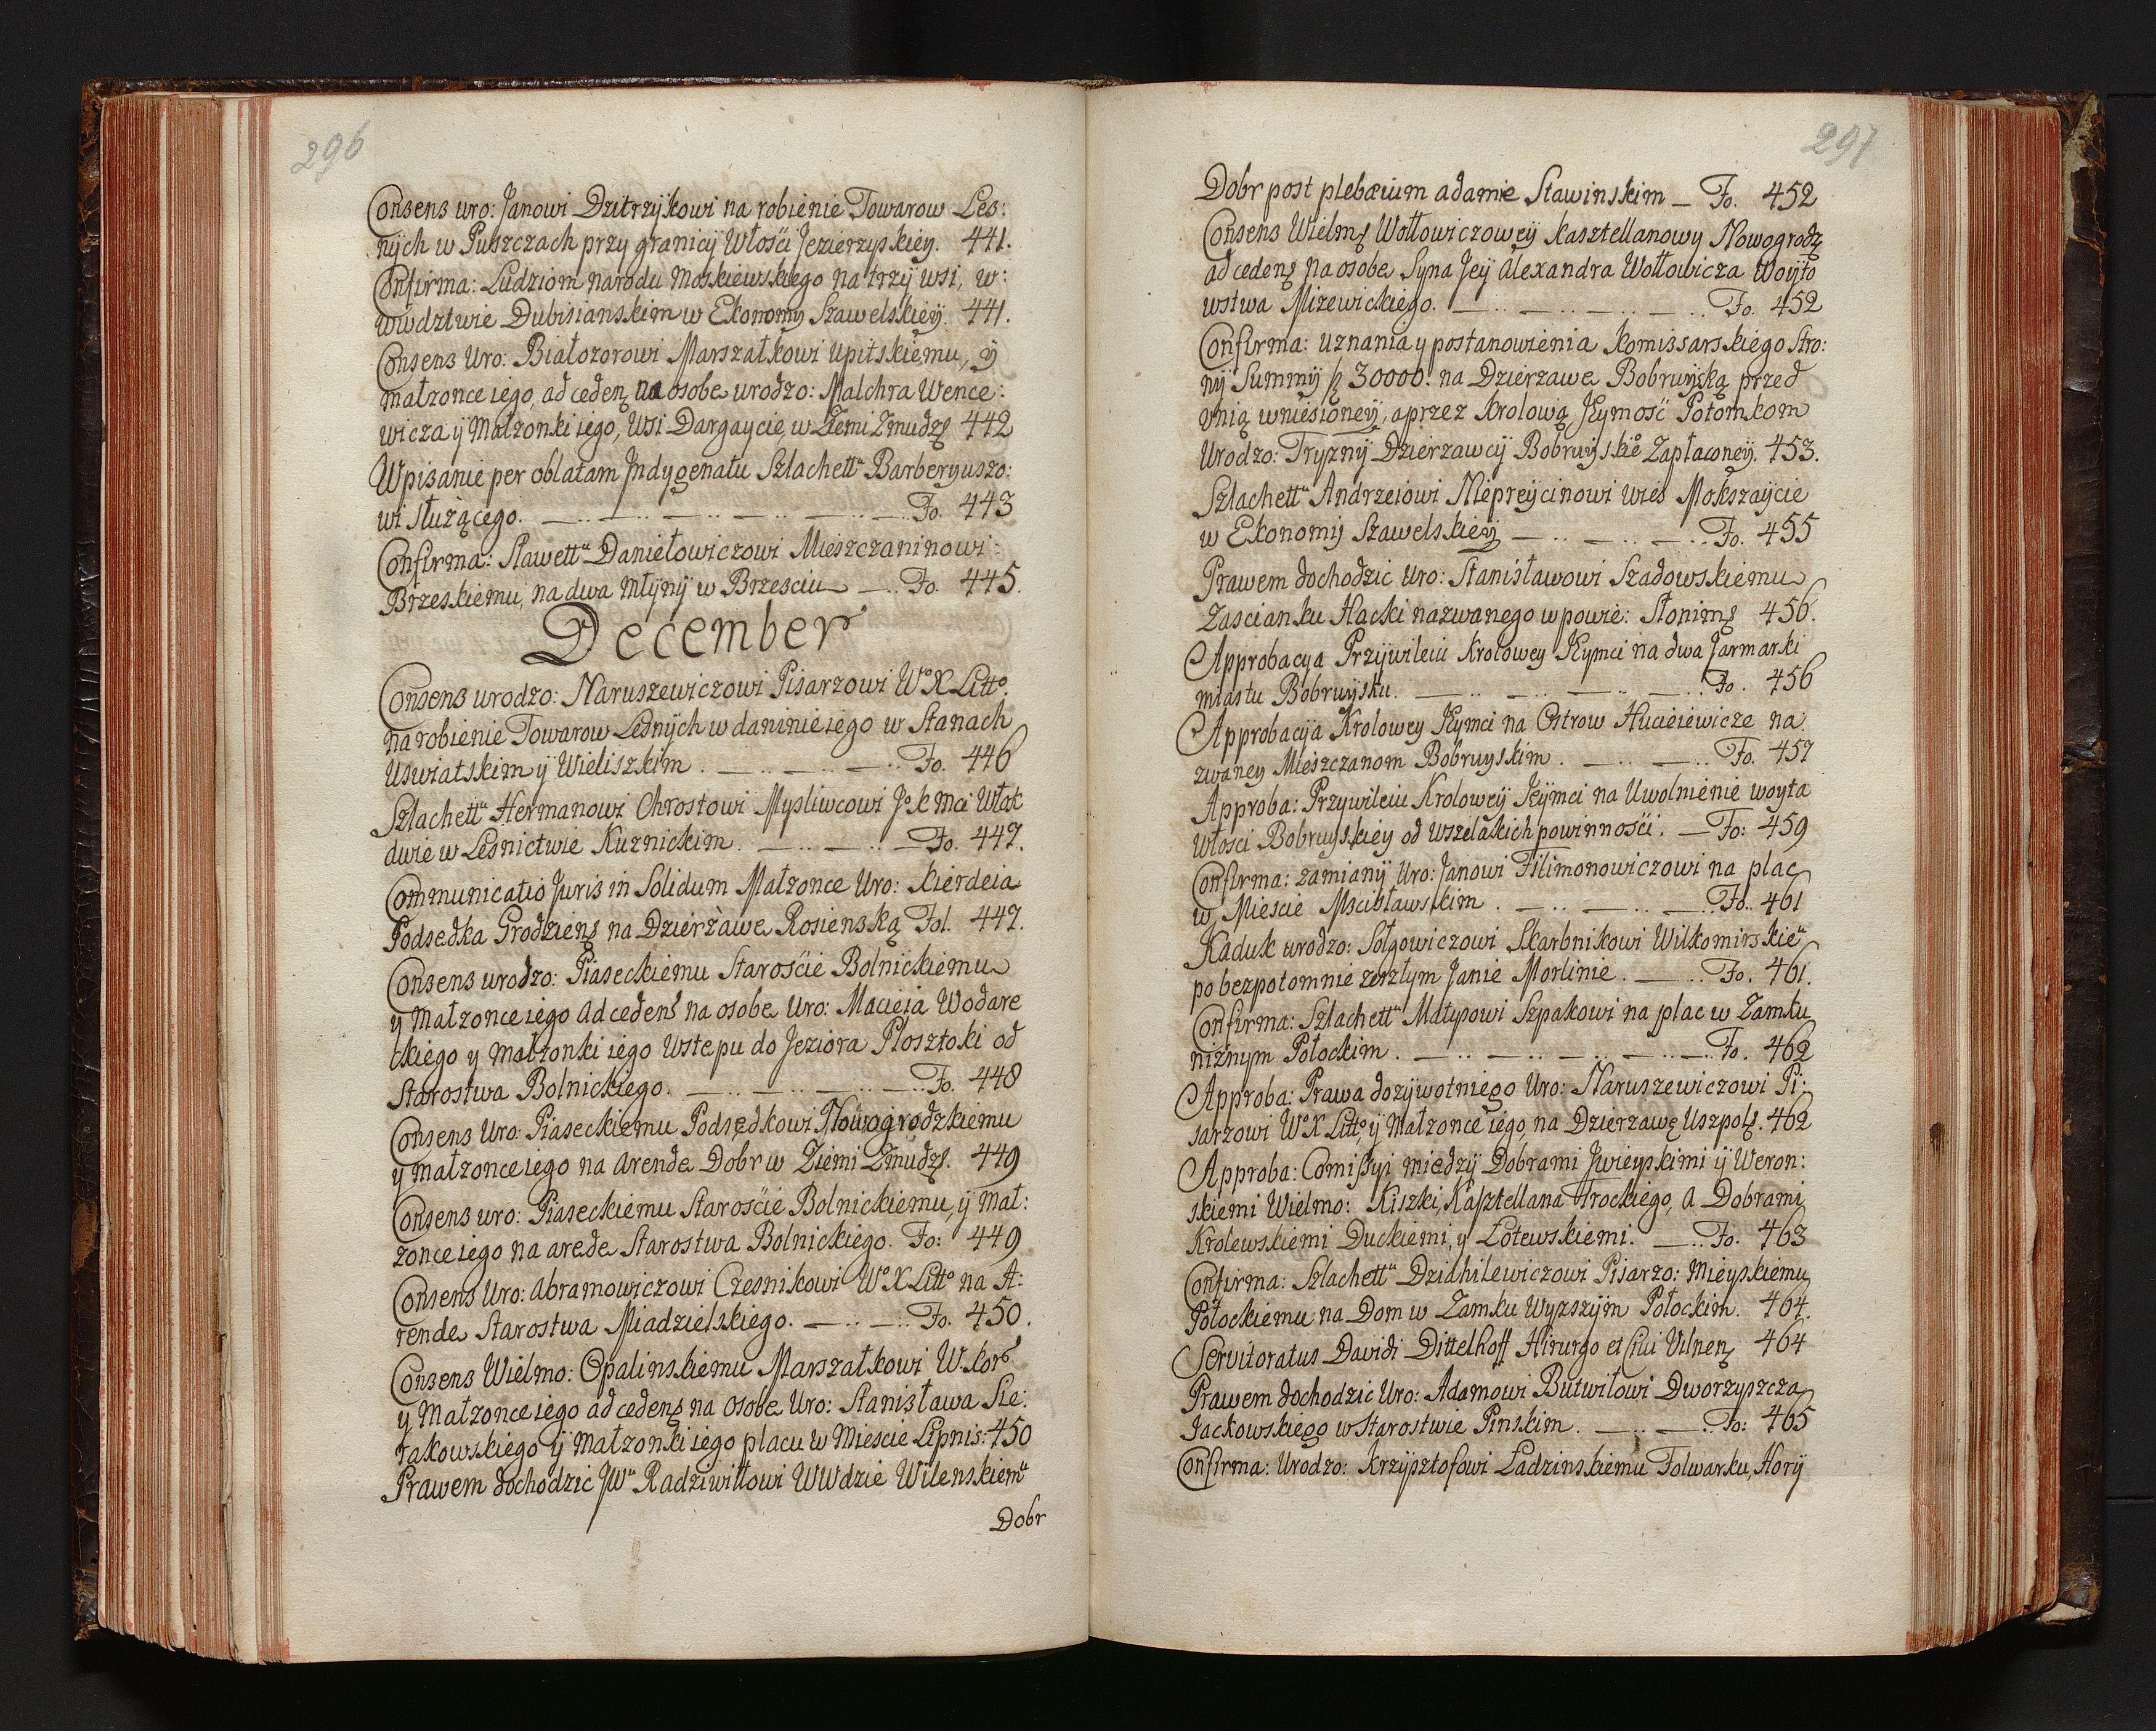 296
Consens uro: Janowi Dzitrzykowi na robienie Towarow Les:
nych w Puszczach przy granicy Włości Jezierzyskiey. 441.
Confirma: Ludziom narodu Moskiewskiego na trzy wsi, w:
wwdztwie Dubisianskim w Ekonomy Szawelskiey. 441.
Consens Uro: Białozorowi Marszałkowi Upitskiemu, ÿ
małzonce iego, ad ceden na osobe urodzo: Malchra Wence:
wicza ÿ Małzonki iego, Wsi Dargaycie, w Ziemi Zmudz 442
Wpisanie per oblatam Indygenatu Szlachettu Barberyuszo:
wi służącego. Fo. 443
Confirma: Sławettu Daniełowiczowi Mieszczaninowi
Brzeskiemu, na dwa młyny w Brzesciu Fo. 445.
December
Consens urodzo: Naruszewiczowi Pisarzowi Wo X Litto.
na robienie Towarow Lesnych w daninie iego w Stanach
Uswiatskim ÿ Wieliszkim. Fo. 446
Szlachettu Hermanowi Chrostowi Mysliwcowi Jo K Mci Włok
dwie w Lesnictwie Kuznickim. Fo. 447.
Communicatio Juris in Solidum Małzonce Uro: Kierdeia
Podsedka Grodziens na Dzierżawe Rosienską Fol. 447.
Consens urodzo: Piaseckiemu Starośćie Bolnickiemu
y Małzonce iego ad cedens na osobe Uro: Macieia Wodare
ckiego y małzonki iego Wstepu do Jeziora Płosztoki od
Starostwa Bolnickiego. Fo. 448
Consens Uro: Piaseckiemu Podsedkowi Nowogrodzkiemu
y małzonce iego na arende Dobr w Ziemi Zmudz. 449
Consens uro: Piaseckiemu Starośćie Bolnickiemu, ÿ mał:
zonce iego na arede Starostwa Bolnickiego. Fo: 449
Consens Uro: Abramowiczowi Czesnikowi Wo X Litto na A:
rende Starostwa Miadzielskiego. Fo. 450.
Consens Wielmo: Opalinskiemu Marszałkowi W. Kor
y Małzonce iego ad cedens na osobe Uro: Stanisława Sie:
rakowskiego ÿ Małzonki iego placu w Miescie Lipnis: 450
Prawem dochodzic JWu Radziwiłłowi WWdzie Wilenskiemu
Dobr
297
Dobr post plebæium adamie Sławinskim Fo. 452
Consens Wielm Wołłowiczowey Kasztellanowy Nowogrodz
ad cedens na osobe Syna Jey Alexandra Wołłowicza Woyto
wstwa Mizewickiego. Fo. 452
Confirma: uznania y postanowienia Komissarskiego Stro:
ny Summy 30000. na Dzierzawe Bobruyską przed
Unią wniesioney, a przez Krolową Jeymość Potomkom
Urodzo: Tryzny Dzierzawcy Bobruyskio Zapłaconey. 453.
Szlachettu Andrzeiowi Nepreycinowi Wies Mokszaycie
w Ekonomiy Szawelskiey Fo. 455
Prawem dochodzic Uro: Stanisławowi Szadowskiemu
Zascianku Hacki nazwanego w powie: Słonims 456.
Approbacya Przywileiu Krolowey Jeymci na dwa Jarmarki
miastu Bobruysku. Fo. 456
Approbacyia Krolowey Jeymci na Ostrow Hucieiewicze na
zwaney Mieszczanom Bobruyskim. Fo. 457
Approba: Przywileiu Krolowey Jeymci na Uwolnienie woyta
włosci Bobruyskiey od wszelakich powinnośći. Fo: 459
Confirma: zamiany Uro: Janowi Filimonowiczowi na plac
w Miescie Mscisławskim. Fo. 461
Kaduk urodzo: Sołgowiczowi Skarbnikowi Wilkomirskieu
po bezpotomnie zeszłym Janie Morlinie. Fo. 461.
Confirma: Szlachettu Szpakowi na plac w Zamku
niznym Połockim. Fo. 462
Approba: Prawa dozywotniego Uro: Naruszewiczowi Pi:
sarzowi Wo X Litto, ÿ Małzonce iego, na Dzierzawę Uszpols. 462
Approba: Comissyi między Dobrami Jwieyskimi ÿ Weron:
skiemi Wielmo: Kiszki, Kasztellana Trockiego, a Dobrami
Krolewskiemi Duckiemi, y Łotewskiemi. Fo. 463
Confirma: Szlachettu Dzidhilewiczowi Pisarzo: Mieyskiemu
Połockiemu na Dom w Zamku Wyzszym Połockim. 464.
Servitoratus Davidi Dittelhoff Hirurgo et Civi Vilnen 464
Prawem dochodzic Uro: Adamowi Butwiłowi Dworzyszcza
Jackowskiego w Starostwie Pinskim. Fo: 465
Confirma: Urodzo: Krzysztofowi Ładzinskiemu Folwarku, Hory